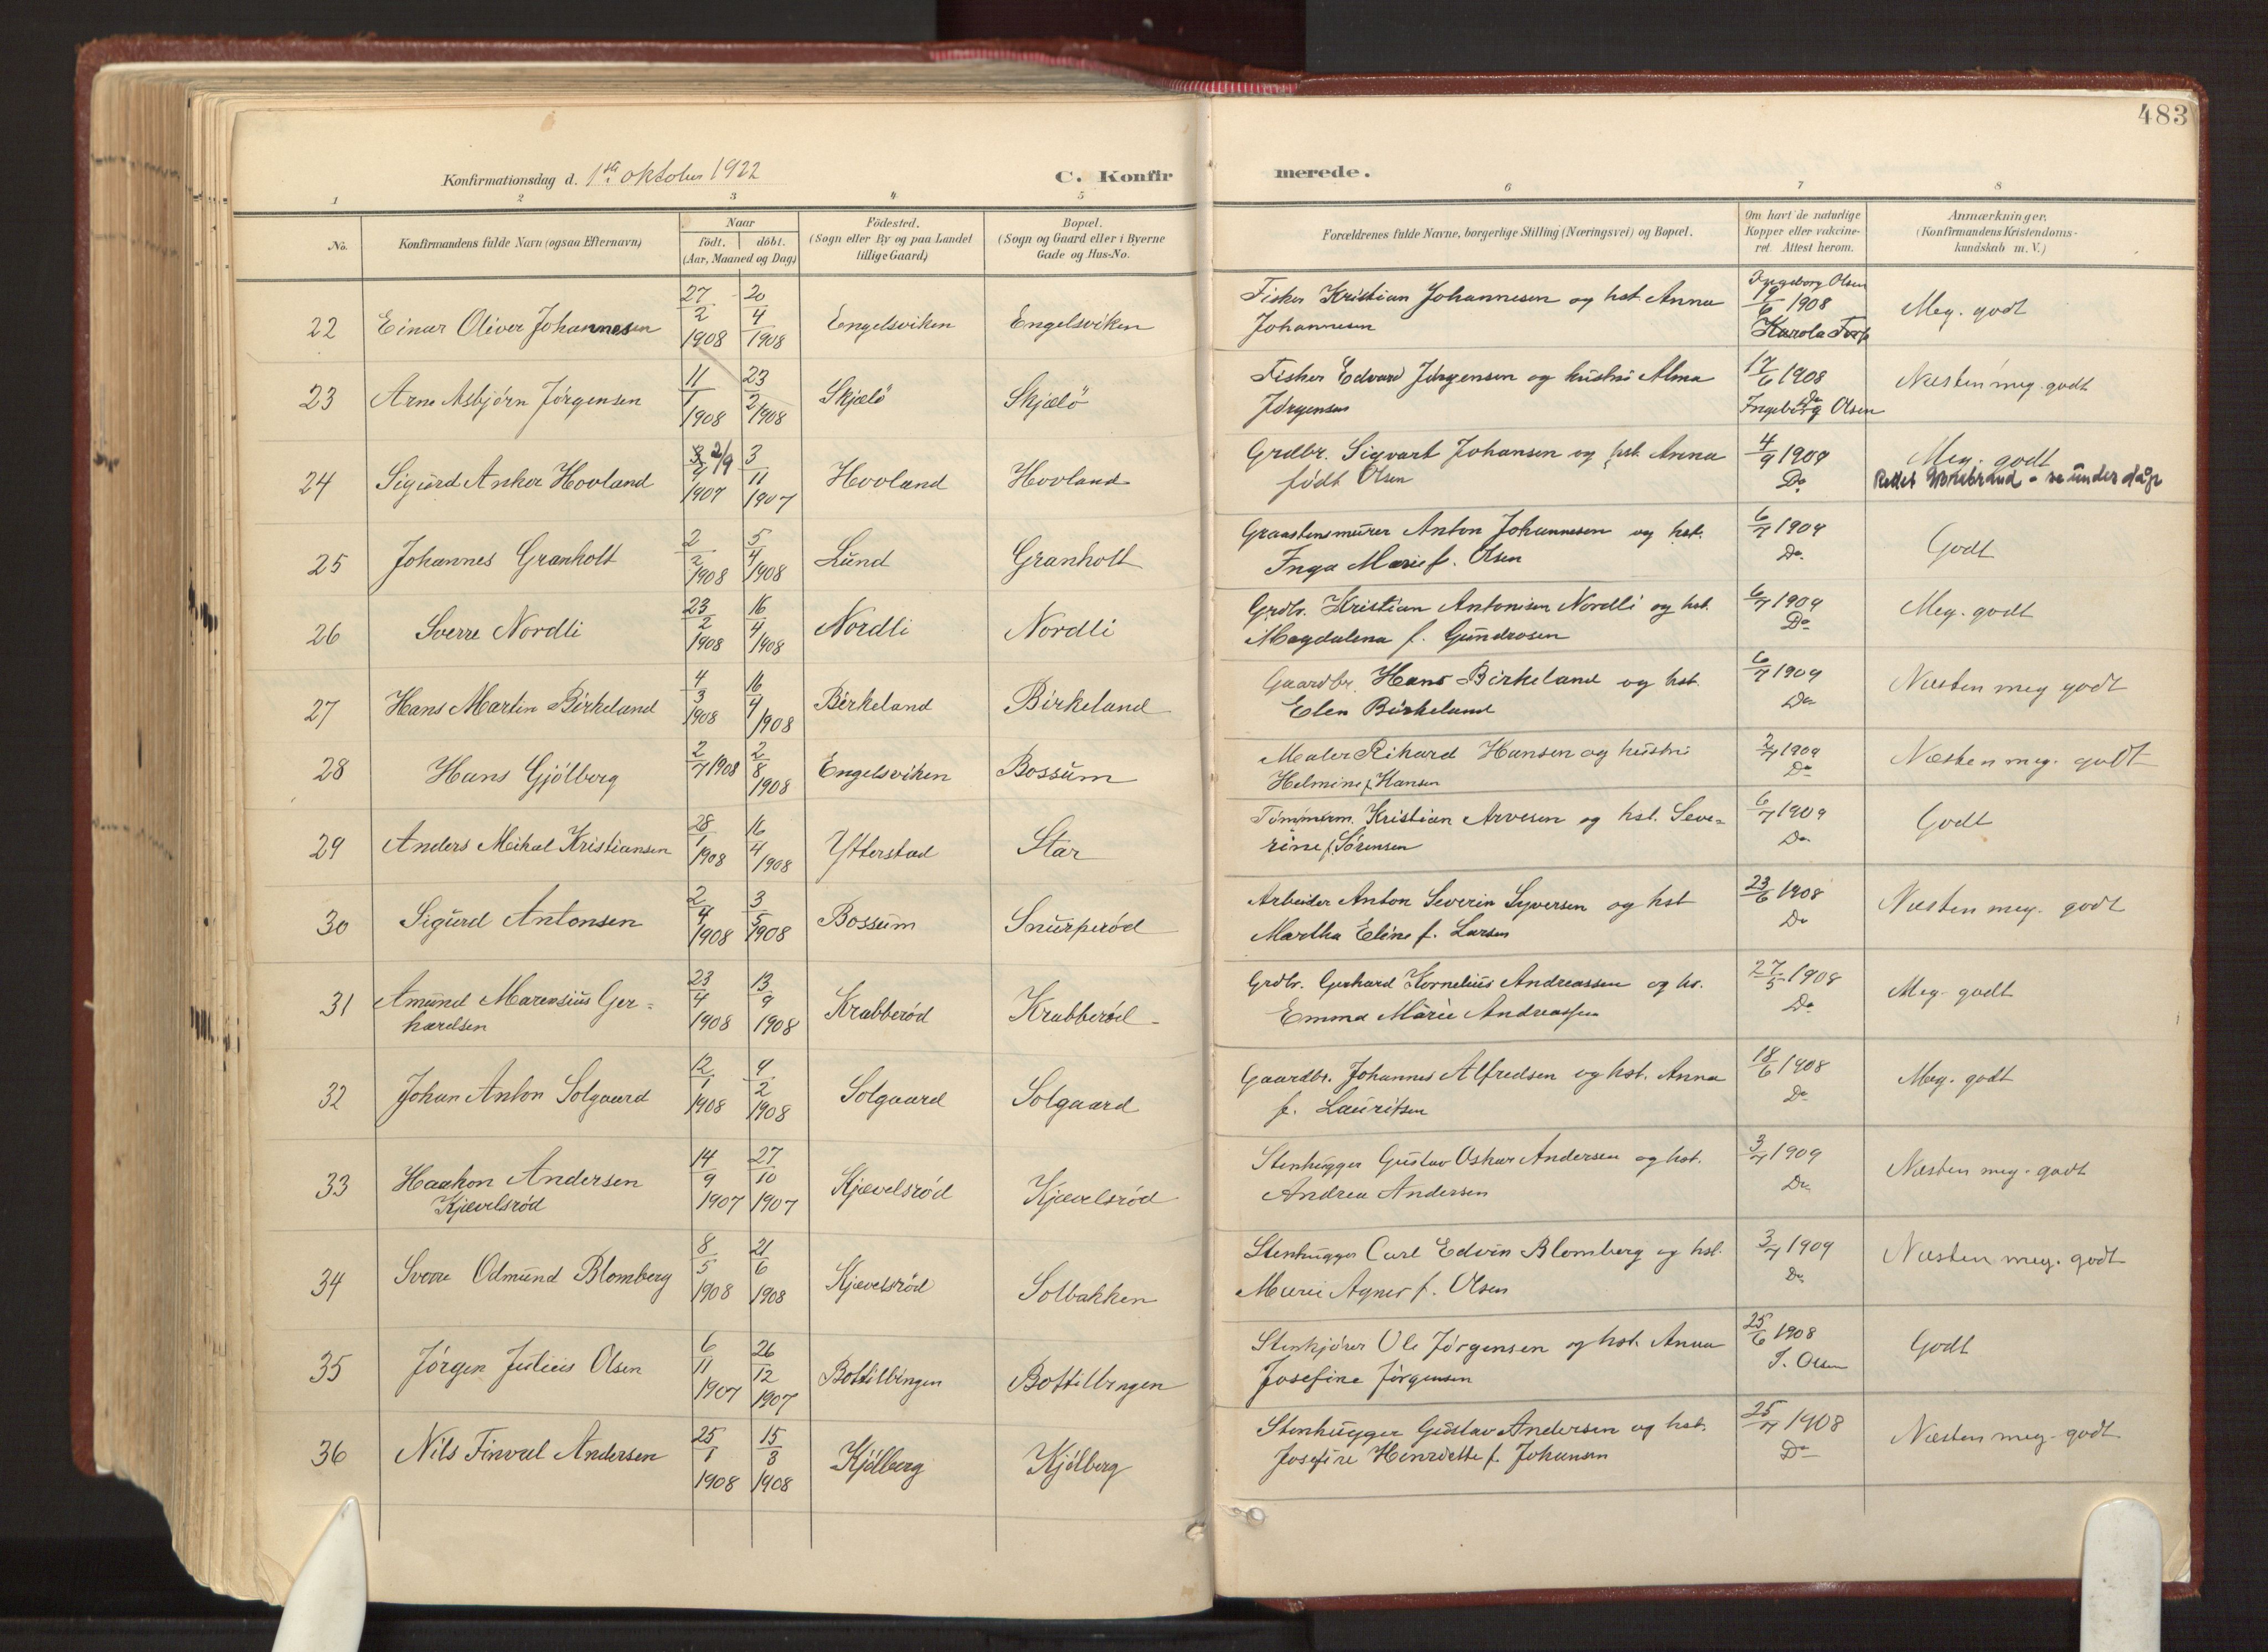 483
Konfirmationsdag d. 1ste oktober 1922
C. Konfirmerede.
1 2 3 4 5 6 7 8
No. | Konfirmandens fulde Navn (ogsaa Efternavn) | Naar født. | døbt. (Aar, Maaned og Dag) | Fødested. (Sogn eller By og paa Landet tillige Gaard) | Bopæl. (Sogn og Gaard eller i Byerne Gade og Hus-No. | Forældrenes fulde Navne, borgerlige Stilling (Næringsvei) og Bopæl. | Om havt de naturlige Kopper eller vakcineret. Attest herom. | Anmærkninger. (Konfirmandens Kristendomskundskab m. V.)
22 | Einar Oliver Johannesen | 27/2 1908 | 20/4 1908 | Engelsviken | Engelsviken | Fisker Kristian Johannesen og hst. Anna Johannesen | Ingeborg Olsen /6 1908 Karola | Meg. godt
23 | Arne Asbjørn Jørgensen | 11/1 1908 | 23/2 1908 | Skjælö | Skjælö | Fisker Edvard Jørgensen og hustru Alma Jørgensen | 17/6 1908 Do Ingeborg Olsen | Næsten meg. godt
24 | Sigurd Anker Hovland | 3 2/9 1907 | 3/11 1907 | Hovland | Hovland | Grdbr. Sigvart Johansen og hst. Anna født Olsen | 4/9 1909 Do | Meg. godt - se under dåp
25 | Johannes Granholt | 2/2 1908 | 5/4 1908 | Lund | Granholt | Graastensmurer Anton Johannesen og hst. Inga Marie f. Olsen | 6/7 1909 Do. | Godt
26 | Sverre Nordli | 23/2 1908 | 16/4 1908 | Nordli | Nordli | Grdbr. Kristian Antonisen Nordli og hst. Magdalena f. Gundrosen | 6/7 1909 Do | Meg. godt
27 | Hans Martin Birkeland | 4/3 1908 | 16/4 1908 | Birkeland | Birkeland | Gaardbr. Hans Birkeland og hst. Elen Birkeland | 6/7 1909 Do | Næsten meg godt
28 | Hans Gjölberg | 2/7 1908 | 2/8 1908 | Engelsviken | Bossum | Maler Rikard Hansen og hustru Helmine f. Hansen | 2/7 1909 Do | Næsten meg. godt
29 | Anders Mikal Kristiansen | 28/1 1908 | 16/4 1908 | Ytterstad | Star | Tømmerm. Kristian Arvesen og hst. Severine f. Sørensen | 6/7 1909 Do | Godt
30 | Sigurd Antonsen | 2/4 1908 | 3/5 1908 | Bossum | Snurperød | Arbeider Anton Severin Syversen og hst Martha Eline f. Larsen | 23/6 1908 Do | Næsten meg. godt
31 | Amund Marensius Gerhardsen | 23/4 1908 | 13/9 1908 | Krabberød | Krabberød | Grdbr. Gerhard Kornelius Andreassen og hs. Emma Marie Andreassen | 27/5 1908 Do | Meg. godt
32 | Johan Anton Solgaard | 12/1 1908 | 9/2 1908 | Solgaard | Solgaard | Gaardbr. Johannes Alfredsen og hst. Anna f. Lauritsen | 18/6 1908 Do | Meg. godt
33 | Haakon Andersen Kjævelsrød | 14/9 1907 | 27/10 1907 | Kjævelsrød | Kjævelsrød | Stenhugger Gustav Oskar Andersen og hst. Andrea Andersen | 3/7 1909 Do | Næsten meg. godt
34 | Sverre Odmund Blomberg | 8/5 1908 | 21/6 1908 | Kjævelsrød | Solbakken | Stenhugger Carl Edvin Blomberg og hst. Marie Agnes f. Olsen | 3/7 1909 Do | Næsten meg. godt
35 | Jørgen Julius Olsen | 6/11 1907 | 26/12 1907 | Bottilbingen | Bottilbingen | Stenkjører Ole Jørgensen og hst. Anna Josefine Jørgensen | 25/6 1908 I. Olsen | Godt
36 | Nils Finval Andersen | 25/1 1908 | 15/3 1908 | Kjölberg | Kjölberg | Stenhugger Gustav Andersen og hst. Josefine Henriette f. Johansen | 25/7 1908 Do | Næsten meg. godt